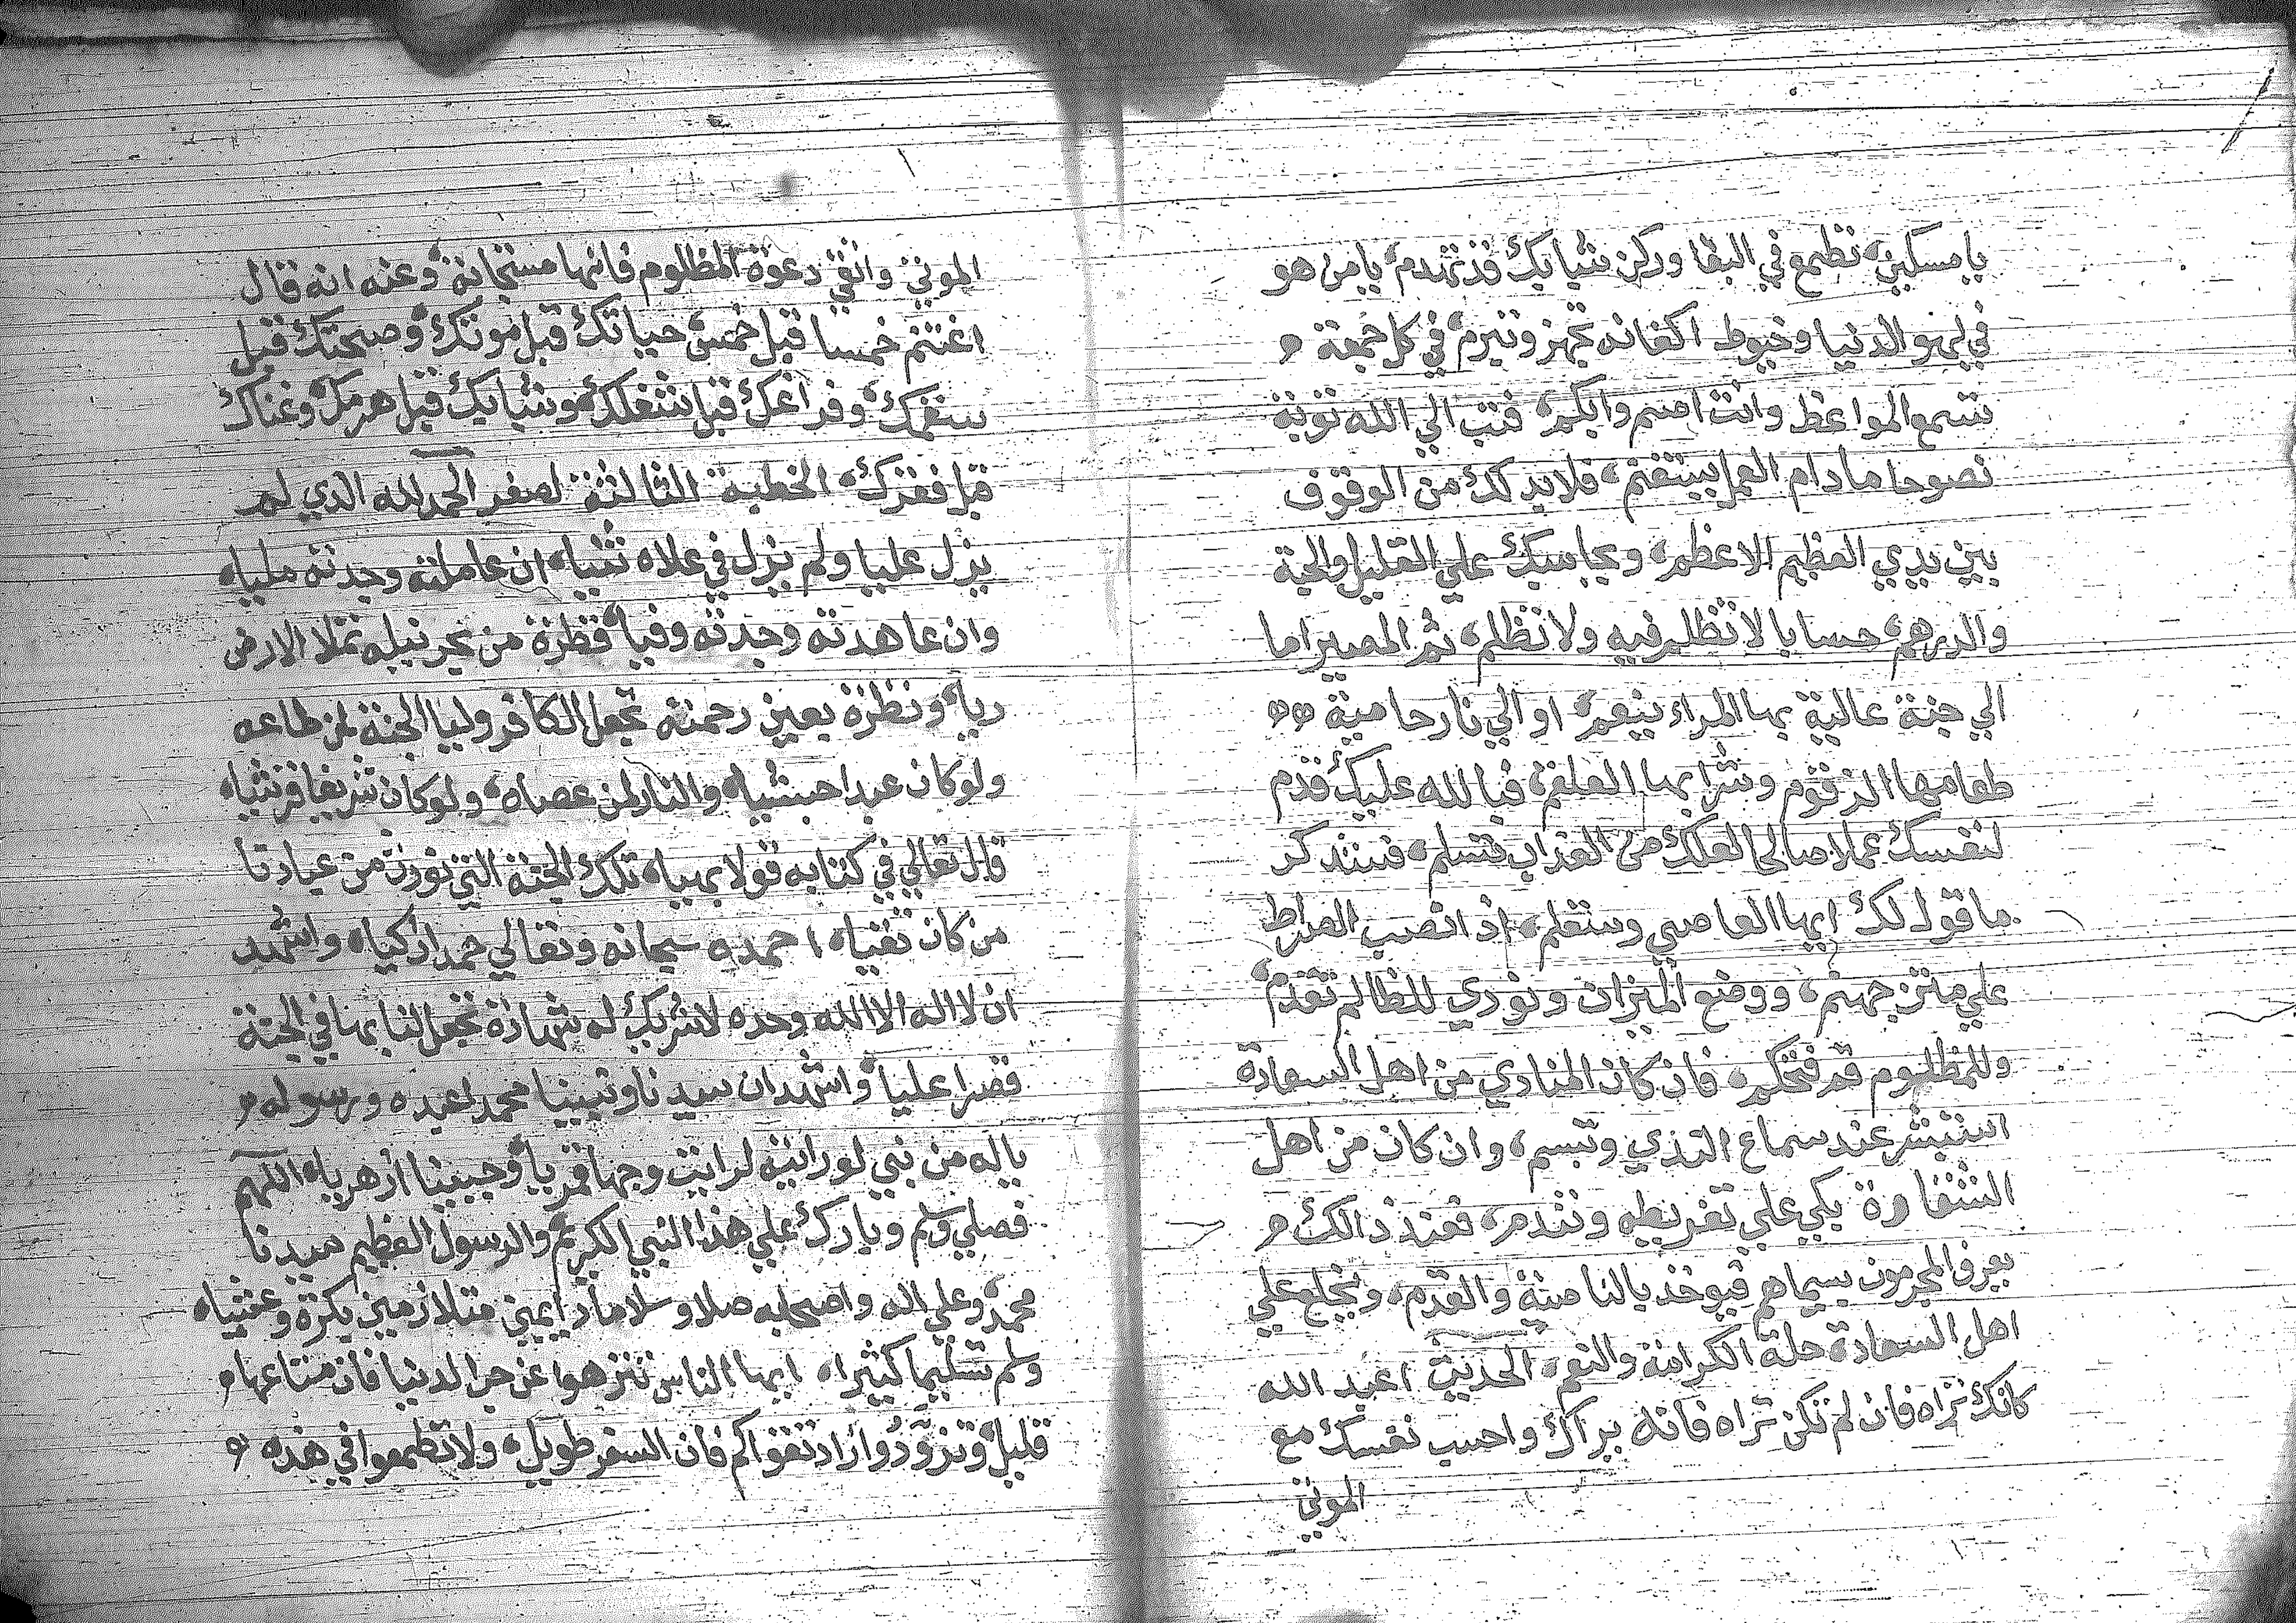 يا مسكين، تطمع في البقا وركن شبابك قد تهدم، يا من هو
في لهو الدنيا وخيوط اكفانه تجهز وتبرم، في كل جمعة
تسمع المواعظ وانت اصم وابكم، فتب الي الله توبة
نصوحا مادام العمل بيتغتم، فلابد لك من الوقوف
بين يدي العظيم الاعظم، ويحاسبك علي القليل والحبة
والدرهم، حسابا لا تظلم فيه ولا تظلم، ثم المصير اما
الي جنة عالية بها المراء ينعم، او الي نار حامية
طعامها الزقوم وشرابها العلقم، فبالله عليك قدم
لنفسك عملا صالحا لعلك من العذاب تسلم، فستذكر
ما قول لك ايها العاصي وستعلم، اذ انصب الصراط
علي متن جهنم، ووضع الميزان ونودي للظالم تقدم،
وللمظلوم قم فتحكم، فان كان المنادي من اهل السعادة
استبشر عند سماع الندي وتبسم، وان كان من اهل
الشقاوة بكي علي تفريطه وتندم، فعند ذالك
يعرف المجرمون بسيماهم فيوخذ بالناصية والقدم، ويخلع علي
اهل السعادة حلة الكرامة والنعم، الحديث اعبد الله
كانك تراه فان لم تكن تراه فانه يراك واحسب نفسك مع
الموتي
الموتي واتقي دعوة المظلوم فانها مستجابة، وعنه انه قال
اغتنم خمسا قبل خمس، حياتك قبل موتك، وصحتك قبل
سقمك، وفراغك قبل شغلك، وشبابك قبل هرمك، وغناك
قبل فقرك، الخطبة الثالثة لصفر الحمد لله الذي لم
يزل عليا ولم يزل في علاه ان عاملته وجدته مليا،
وان عاهدته وجدته وفيا، قطرة من بحر نيله تملا الارض
ريا، ونظرة بعين رحمته تجعل الكافر وليا الجنة لمن طاعه
ولو كان عبدا حبشيا، والنار لمن عصاه، ولو كان شريفا قرشيا،
قال تعالي في كتابه قولا بهيا، تلك الجنة التي نورث من عبادنا
من كان تقيا، احمده سبحانه وتعالي حمدا زكيا، واشهد
ان لا اله الا الله وحده لا شريك له شهادة تجعل لنا بها في الجنة
قصرا عليا، واشهد ان سيدنا ونبينا محمدا عبده ورسوله
ياله من نبي لو رايته لرايت وجها قمريا، وجبينا ازهريا، اللهم
فصلي وسلم وبارك علي هذا النبي الكريم، والرسول العظيم سيدنا
محمد، وعلي اله واصحابه صلاو سلاما دايمين متلازمين بكرة وعشيا،
وسلم تسليما كثيرا، ايها الناس تنزهوا عن حب الدنيا فان متاعها
قليل، وتزودوا زاد تقواكم فان السفر طويل، ولا تطمعوا في هذه